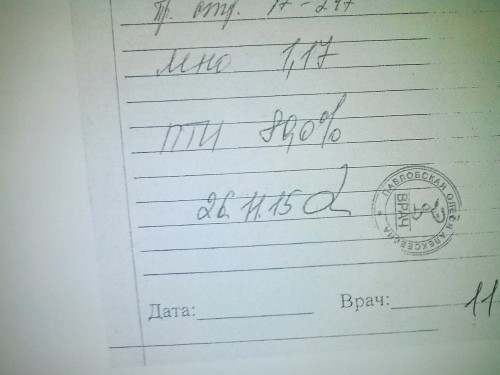 мно 1,17
ПТИ 89,0%
26.11.15
ПАВЛОВСКАЯ ОЛЕСЯ АЛЕКСЕЕВНА
ВРАЧ
Дата: Врач: 11